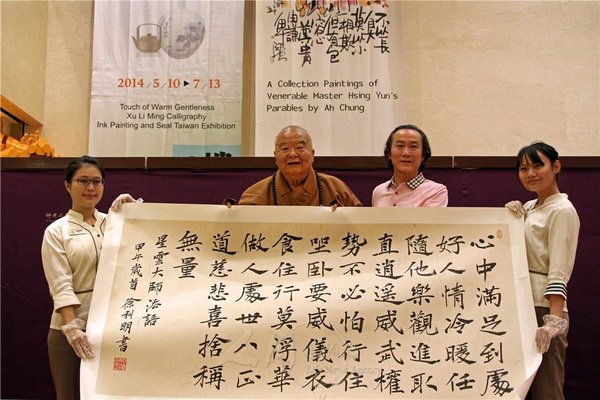 2014/5/10▶7/13
Touch of Warm Gentleness
Xu Li Ming Calligraphy
Ink Painting and Seal Taiwan Exhibition
A Collection Paintings of
Venerable Master Hsing Yun's
Parables by Ah Chung
心中滿足到處
好人情冷暖任
隨他樂觀進取
直逍遙威武權
勢不必怕行住
坐卧要威儀衣
食住行莫浮華
做人處世八正
道慈悲喜捨稱
無量
星雲大師法語
甲午歲首 徐利明書
News Agency